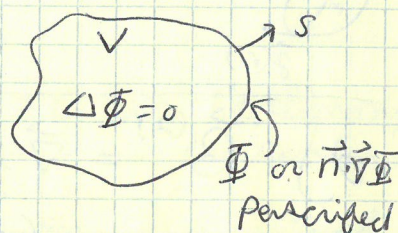 V
S
ΔΦ = 0
Φ or n⃗·∇⃗Φ
perscrified